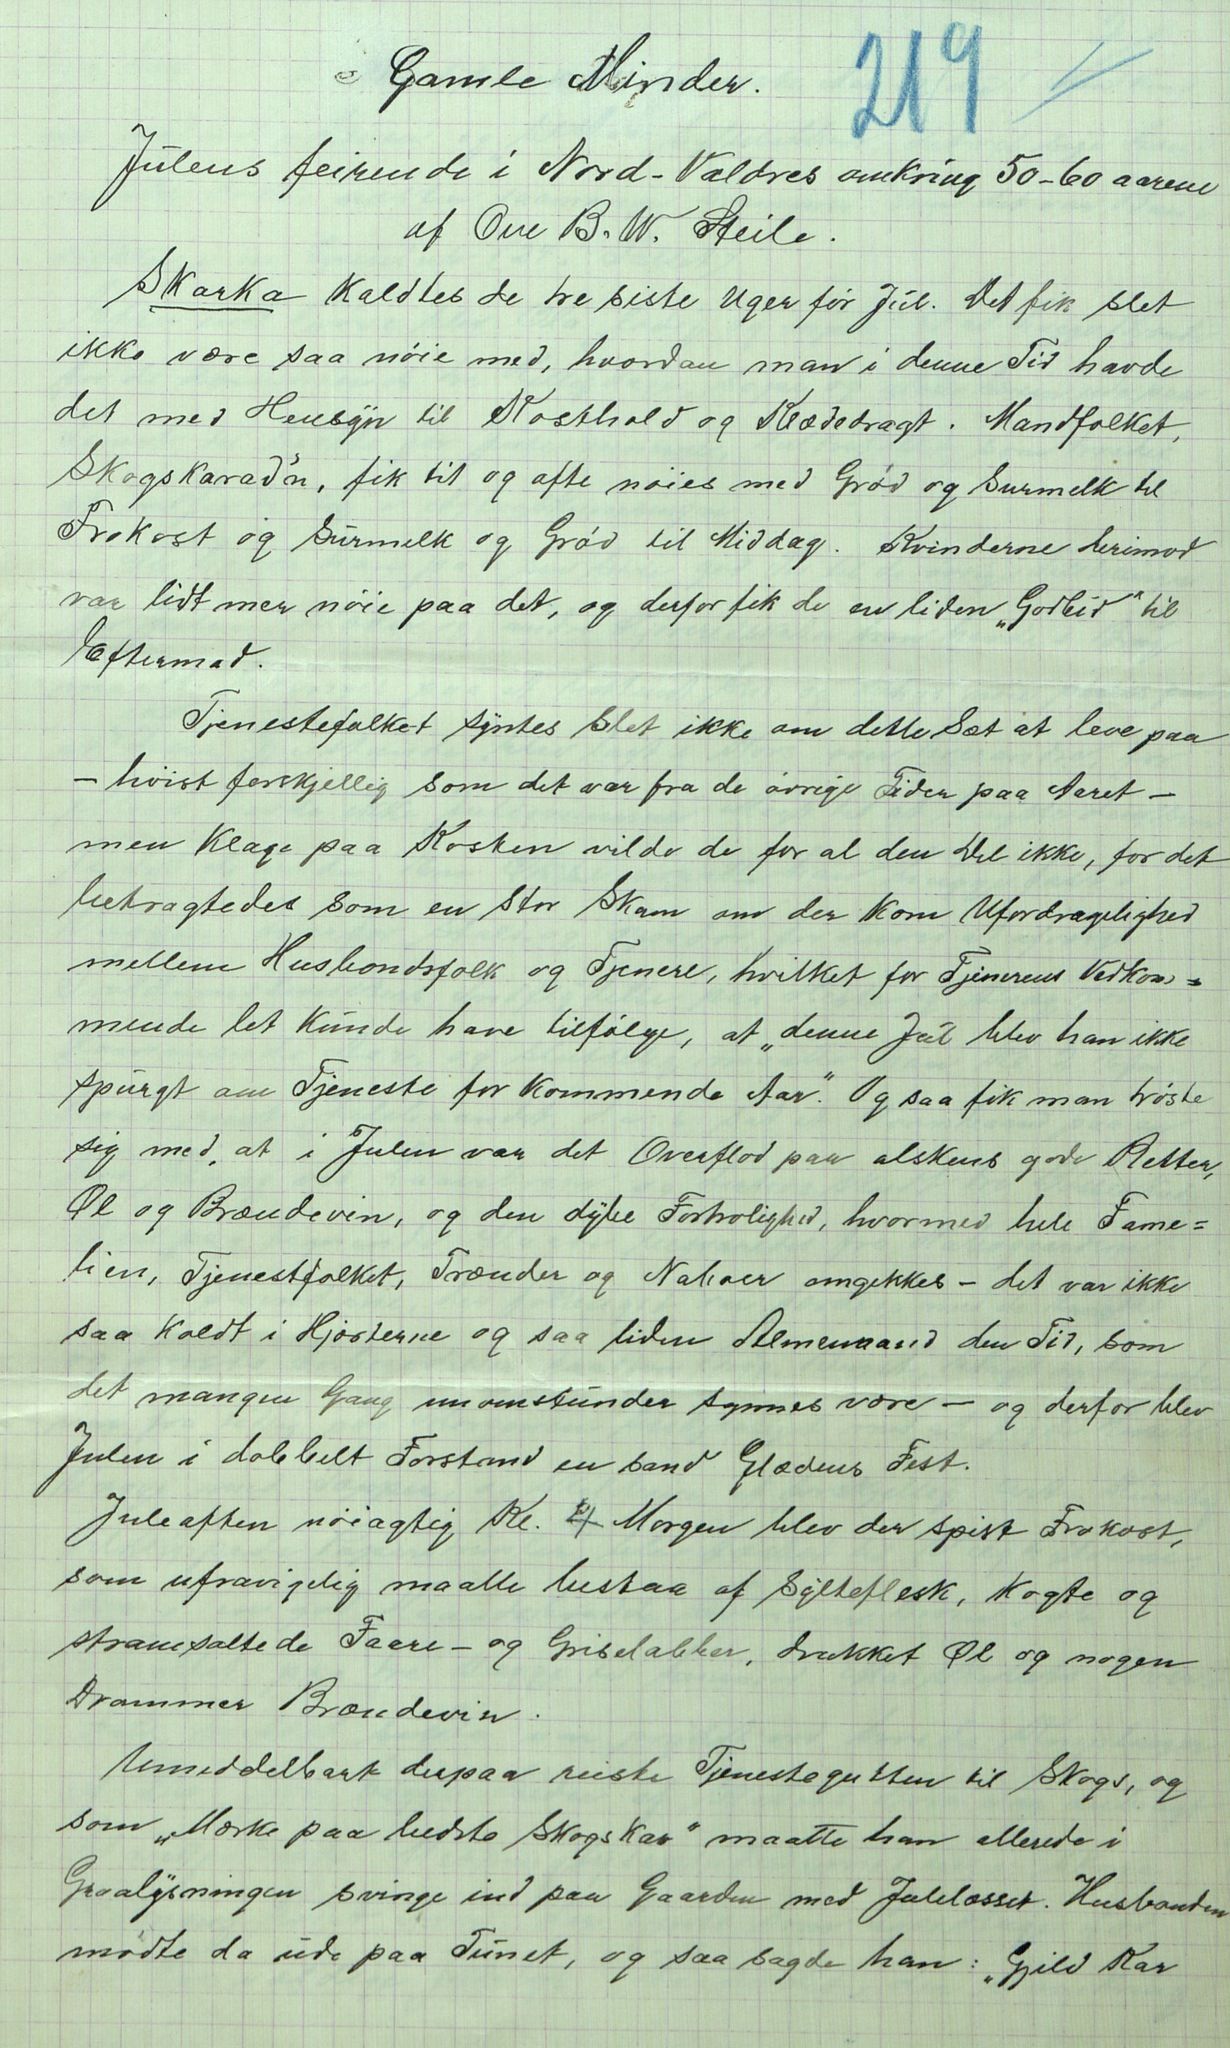 Gamle Minder.
219
Julens feirende i Nord-Valdres omkring 50-60 aarene
af Ove B. W. Steile.
Skarka kaldtes de tre siste Uger før Jul. Det fik slet
ikke være saa nøie med, hvordan man i denne Tid havde
det med Hensyn til Kosthold og Klædedragt. Mandfolket,
Skogskarad'n, fik tit og ofte nøies med Grød og Surmelk til
Frokost og Surmelk og Grød til Middag. Kvinderne herimod
var lidt mer nøie paa det, og derfor fik de en liden „Godbid" til
Eftermad.
Tjenestefolket syntes slet ikke om dette Sæt at leve paa
- høist forskjellig som det var fra de øvrige Tider paa Aaret -
men klage paa Kosten vilde de for al den Del ikke, for det
betragtedes som en stor Skam om der kom Ufordragelighed
mellem Husbondsfolk og Tjenere, hvilket for Tjenerens Vedkom=
mende let kunde have tilfølge, at „denne Jul blev han ikke
spurgt om Tjeneste for kommende Aar". Og saa fik man trøste
sig med, at i Julen var det Overflod paa alskens gode Retter,
Øl og Brændevin, og den dybe Fortrolighed, hvormed hele Fame=
lien, Tjenestfolket, Frænder og Naboer omgikkes - det var ikke
saa koldt i Hjerterne og saa liden Almenaand den Tid, som
det mangen Gang nuomstunder synnes være - og derfor blev
Julen i dobbelt Forstand en sand Glædens Fest.
Juleaften nøiagtig Kl. 4 Morgen blev der spist Frokost,
som ufravigelig maatte bestaa af Sylteflesk, kogte og
stramsaltede Faare- og Griselabber, drukket Øl og nogen
Drammer Brændevin.
Umiddelbart derpaa reiste Tjenestegutten til Skogs, og
som „Mærke paa bedste Skogskar" maatte han allerede i
Graalysningen svinge ind paa Gaarden med Julelæsset. Husbonden
mødte da ude paa Tunet, og saa sagde han: „Gjild Kar